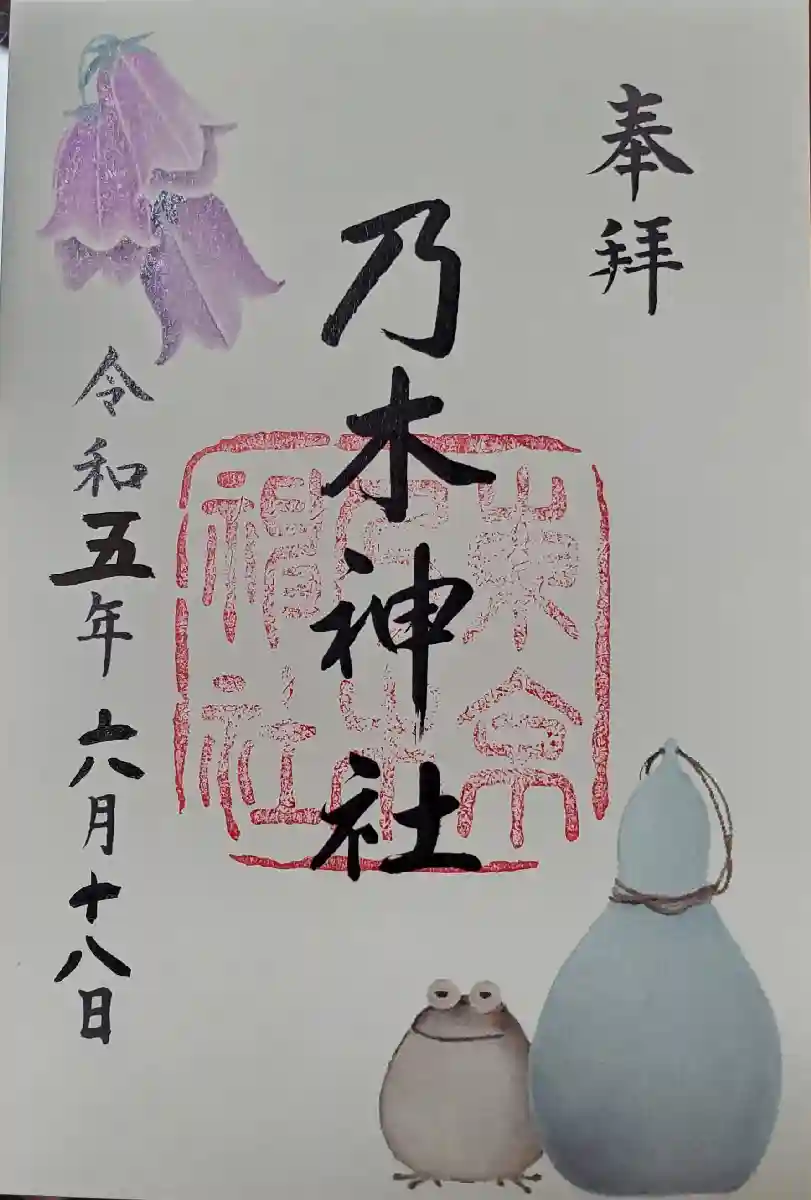 奉拝
乃木神社
令和五年 六月十八日